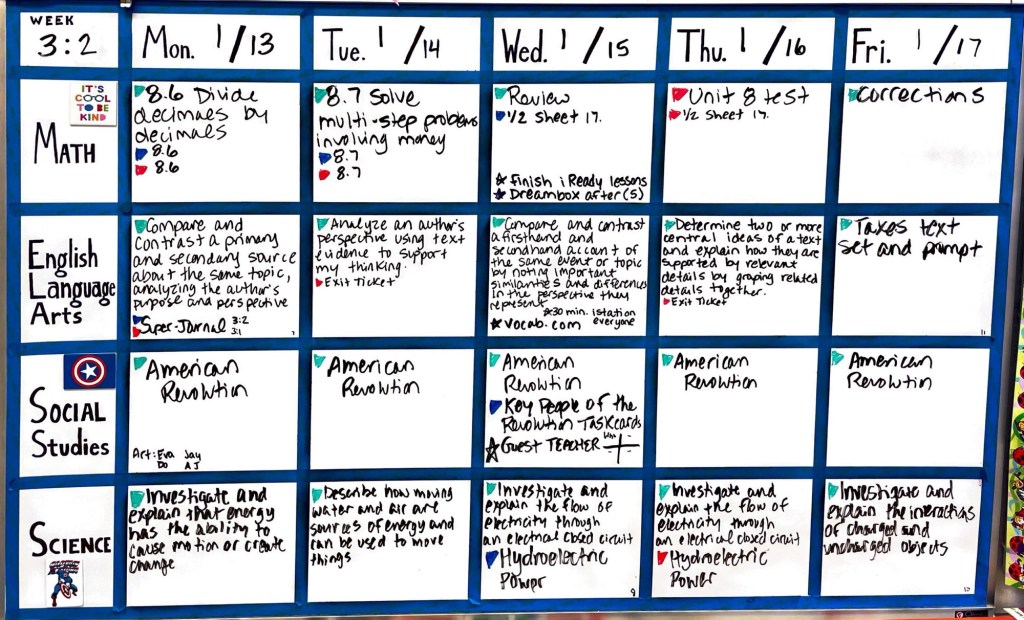 WEEK
3:2
Mon. 1/13
Tue. 1/14
Wed. 1/15
Thu. 1/16
Fri. 1/17
IT'S
COOL
TO BE
KIND
MATH
8.6 Divide
decimals by
decimals
8.6
8.6
8.7 Solve
multi-step problems
involving money
8.7
8.7
Review
1/2 Sheet 17.
★ Finish iReady lessons
★ Dreambox after (5)
Unit 8 test
1/2 Sheet 17.
Corrections
English
Language
Arts
Compare and
contrast a primary
and secondary source
about the same topic,
analyzing the author's
purpose and perspective
Super-Journal 3:2
3:1
Analyze an author's
perspective using text
evidence to support
my thinking.
Exit Ticket
Compare and contrast
a firsthand and
secondhand account of
the same event or topic
by noting important
similarities and differences
in the perspective they
represent
★30 min. istation
everyone
★ Vocab.com
Determine two or more
central ideas of a text
and explain how they are
supported by relevant
details by grouping related
details together.
Exit Ticket
Taxes text
set and prompt
11
SOCIAL
Studies
American
Revolution
Art: Eva Jay
Do AJ
American
Revolution
American
Revolution
Key People of the
Revolution Taskcards
★ GUEST TEACHER
American
Revolution
American
Revolution
SCIENCE
Investigate and
explain that energy
has the ability to
cause motion or create
change
Describe how moving
water and air are
sources of energy and
can be used to move
things
Investigate and
explain the flow of
electricity through
an electrical closed circuit
Hydroelectric
Power
9
Investigate and
explain the flow of
electricity through
an electrical closed circuit
Hydroelectric
Power
Investigate and
explain the interactions
of charged and
uncharged objects